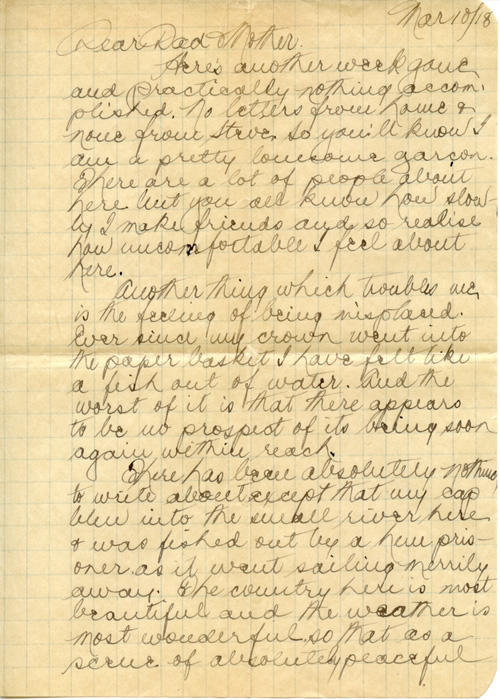 Mar 10/18
Dear Dad & Mother.
Here's another week gone
and practically nothing accom-
plished. No letters from home &
none from Steve. So you'll know I
am a pretty lonesome garcon.
There are a lot of people about
here but you all know how slow-
ly I make friends and so realise
how uncomfortable I feel about
here.
Another thing which troubles me
is the feeling of being misplaced.
Ever since my crown went into
the paper basket I have felt like
a fish out of water. And the
worst of it is that there appears
to be no prospect of its being soon
again within reach.
There has been absolutely nothing
to write about except that my cap
blew into the small river here
& was fished out by a hun pris-
oner as it went sailing merrily
away. The country here is most
beautiful and the weather is
most wonderful so that as a
scene of absolutely peaceful